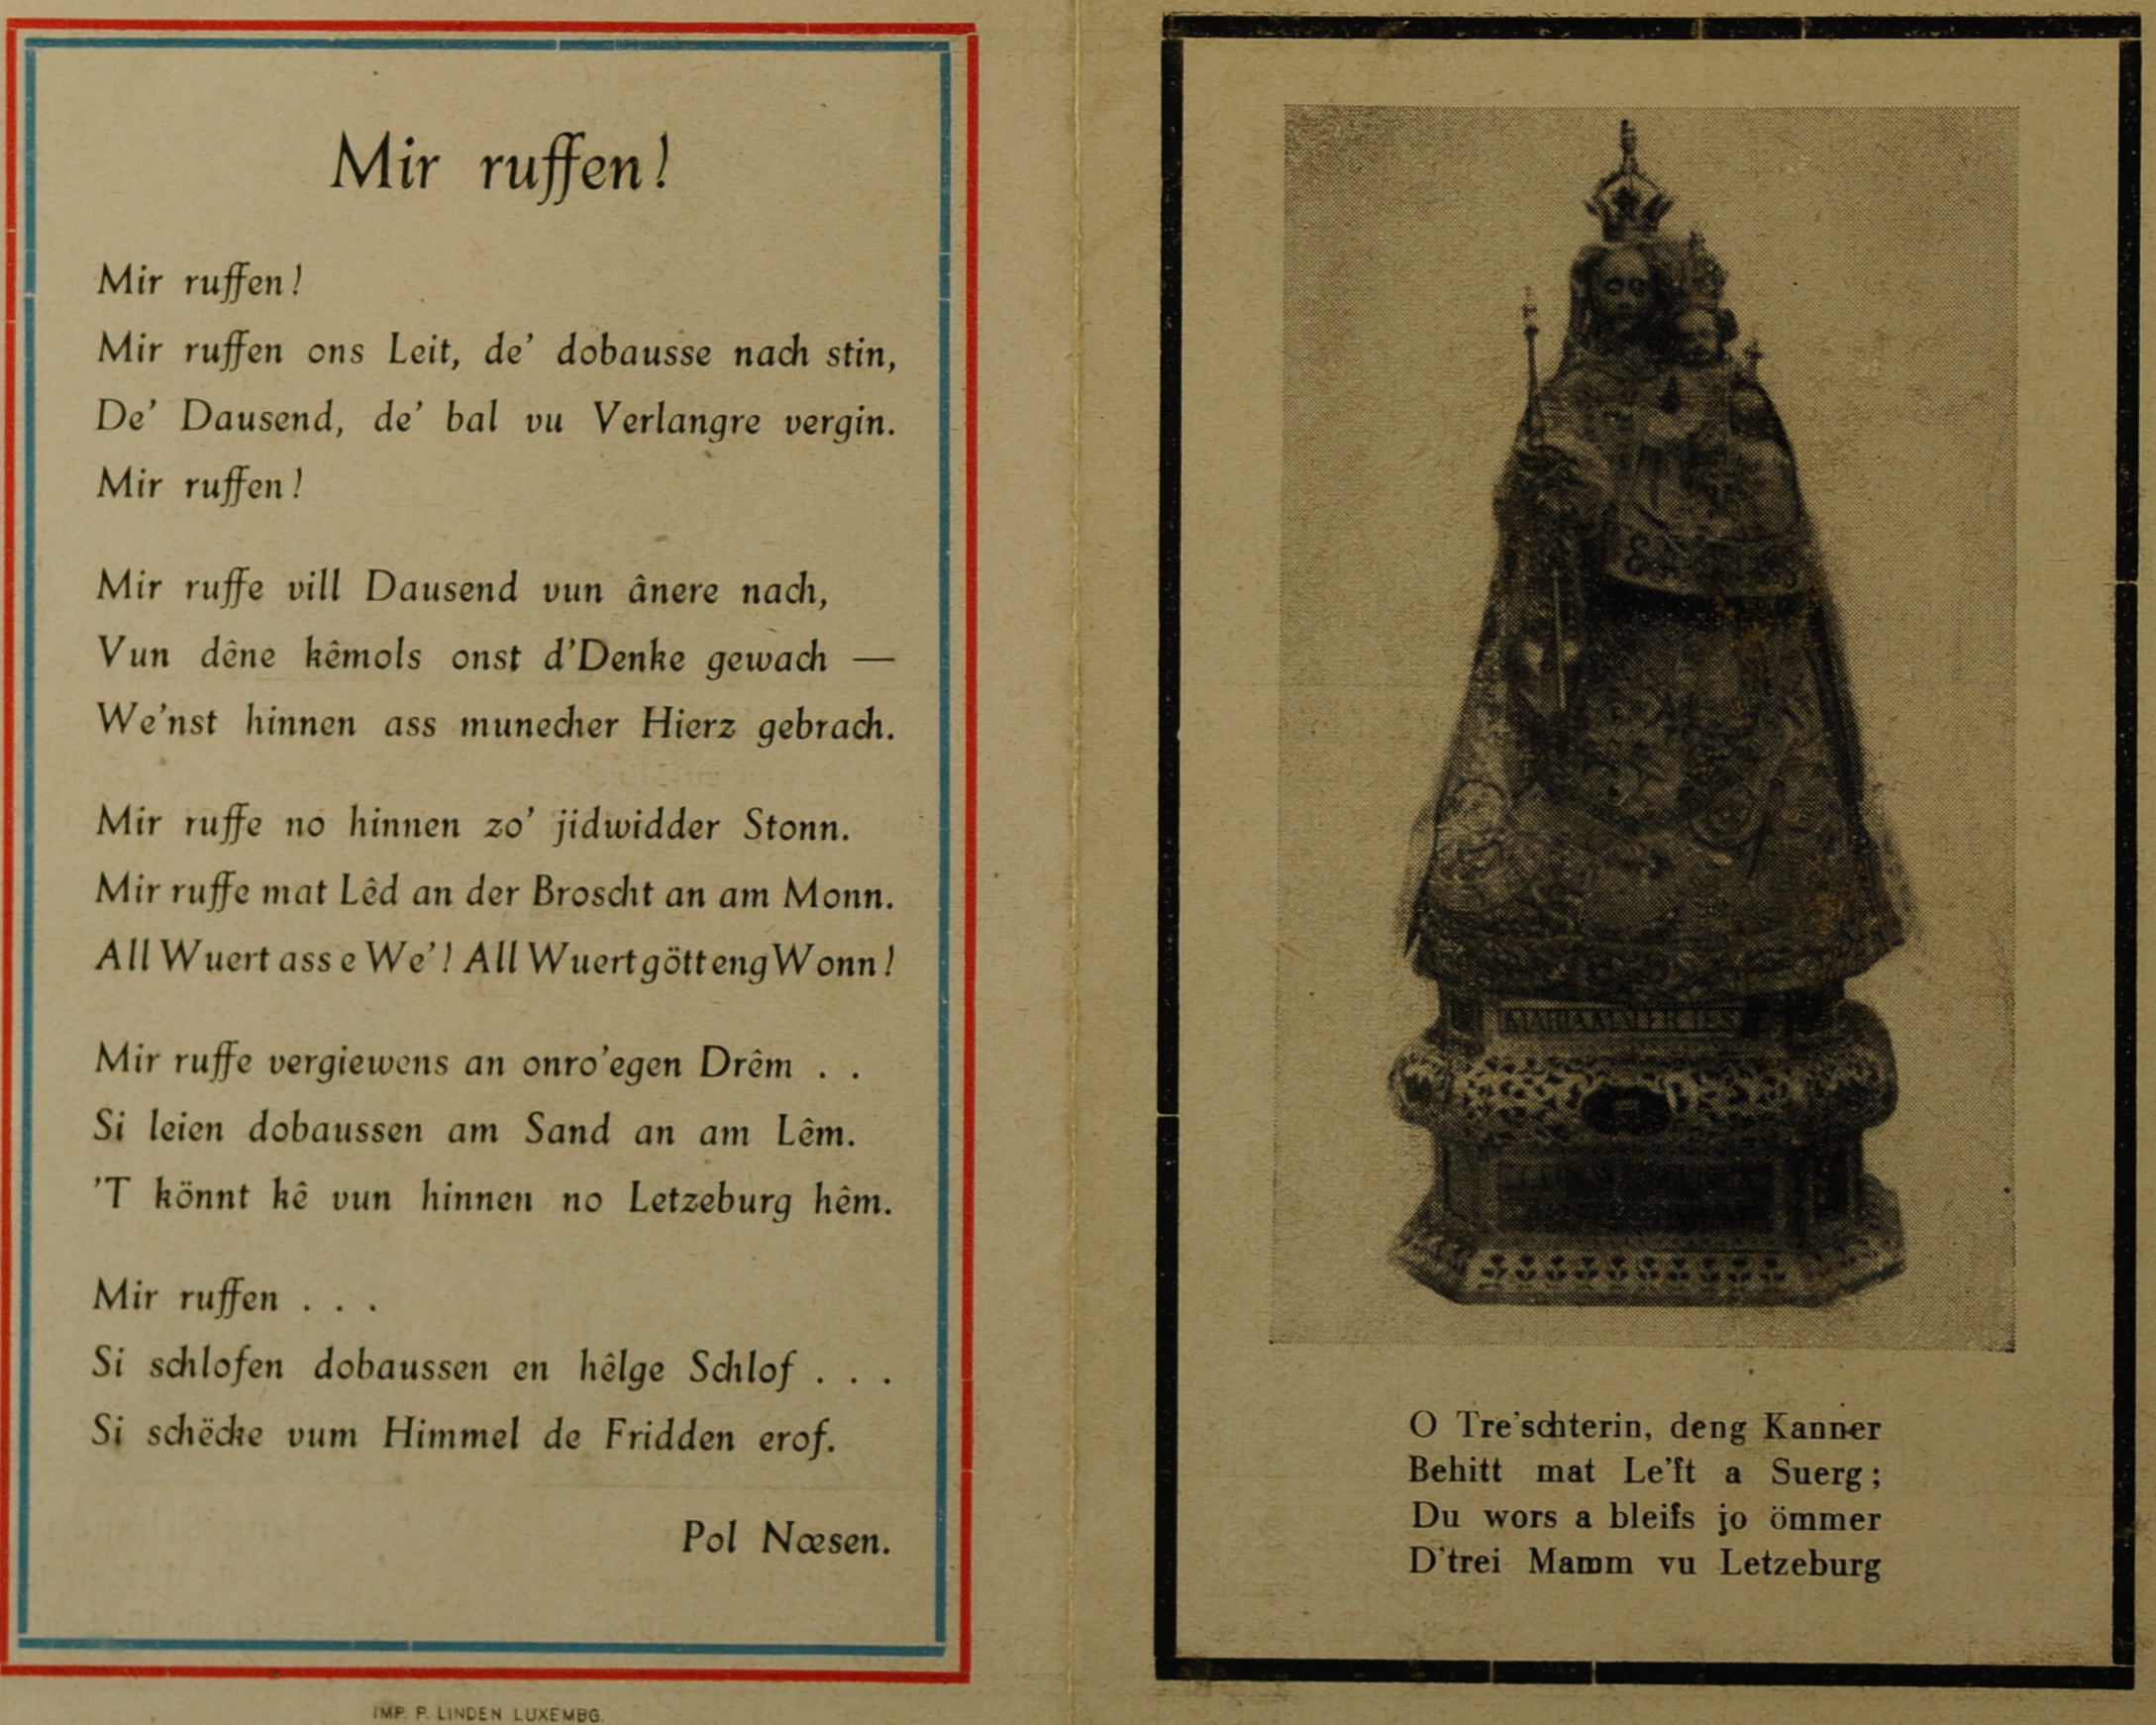 Mir ruffen!
Mir ruffen!
Mir ruffen ons Leit, de’ dobausse nach stin,
De’ Dausend, de’ bal vu Verlangre vergin.
Mir ruffen!
Mir ruffe vill Dausend vun ânere nach,
Vun dêne kêmols onst d’Denke gewach —
We’nst hinnen ass munecher Hierz gebrach.
Mir ruffe no hinnen zo’ jidwidder Stonn.
Mir ruffe mat Lêd an der Broscht an am Monn.
All Wuert ass e We’! All Wuert gött eng Wonn!
Mir ruffe vergiewens an onro’egen Drêm . .
Si leien dobaussen am Sand an am Lêm.
’T könnt kê vun hinnen no Letzeburg hêm.
Mir ruffen . . .
Si schlofen dobaussen en hêlge Schlof . . .
Si schëcke vum Himmel de Fridden erof.
Pol Nœsen.
IMP. P. LINDEN LUXEMBG.
MARIA MATER JESU
O Tre’schterin, deng Kanner
Behitt mat Le’ft a Suerg;
Du wors a bleifs jo ömmer
D’trei Mamm vu Letzeburg